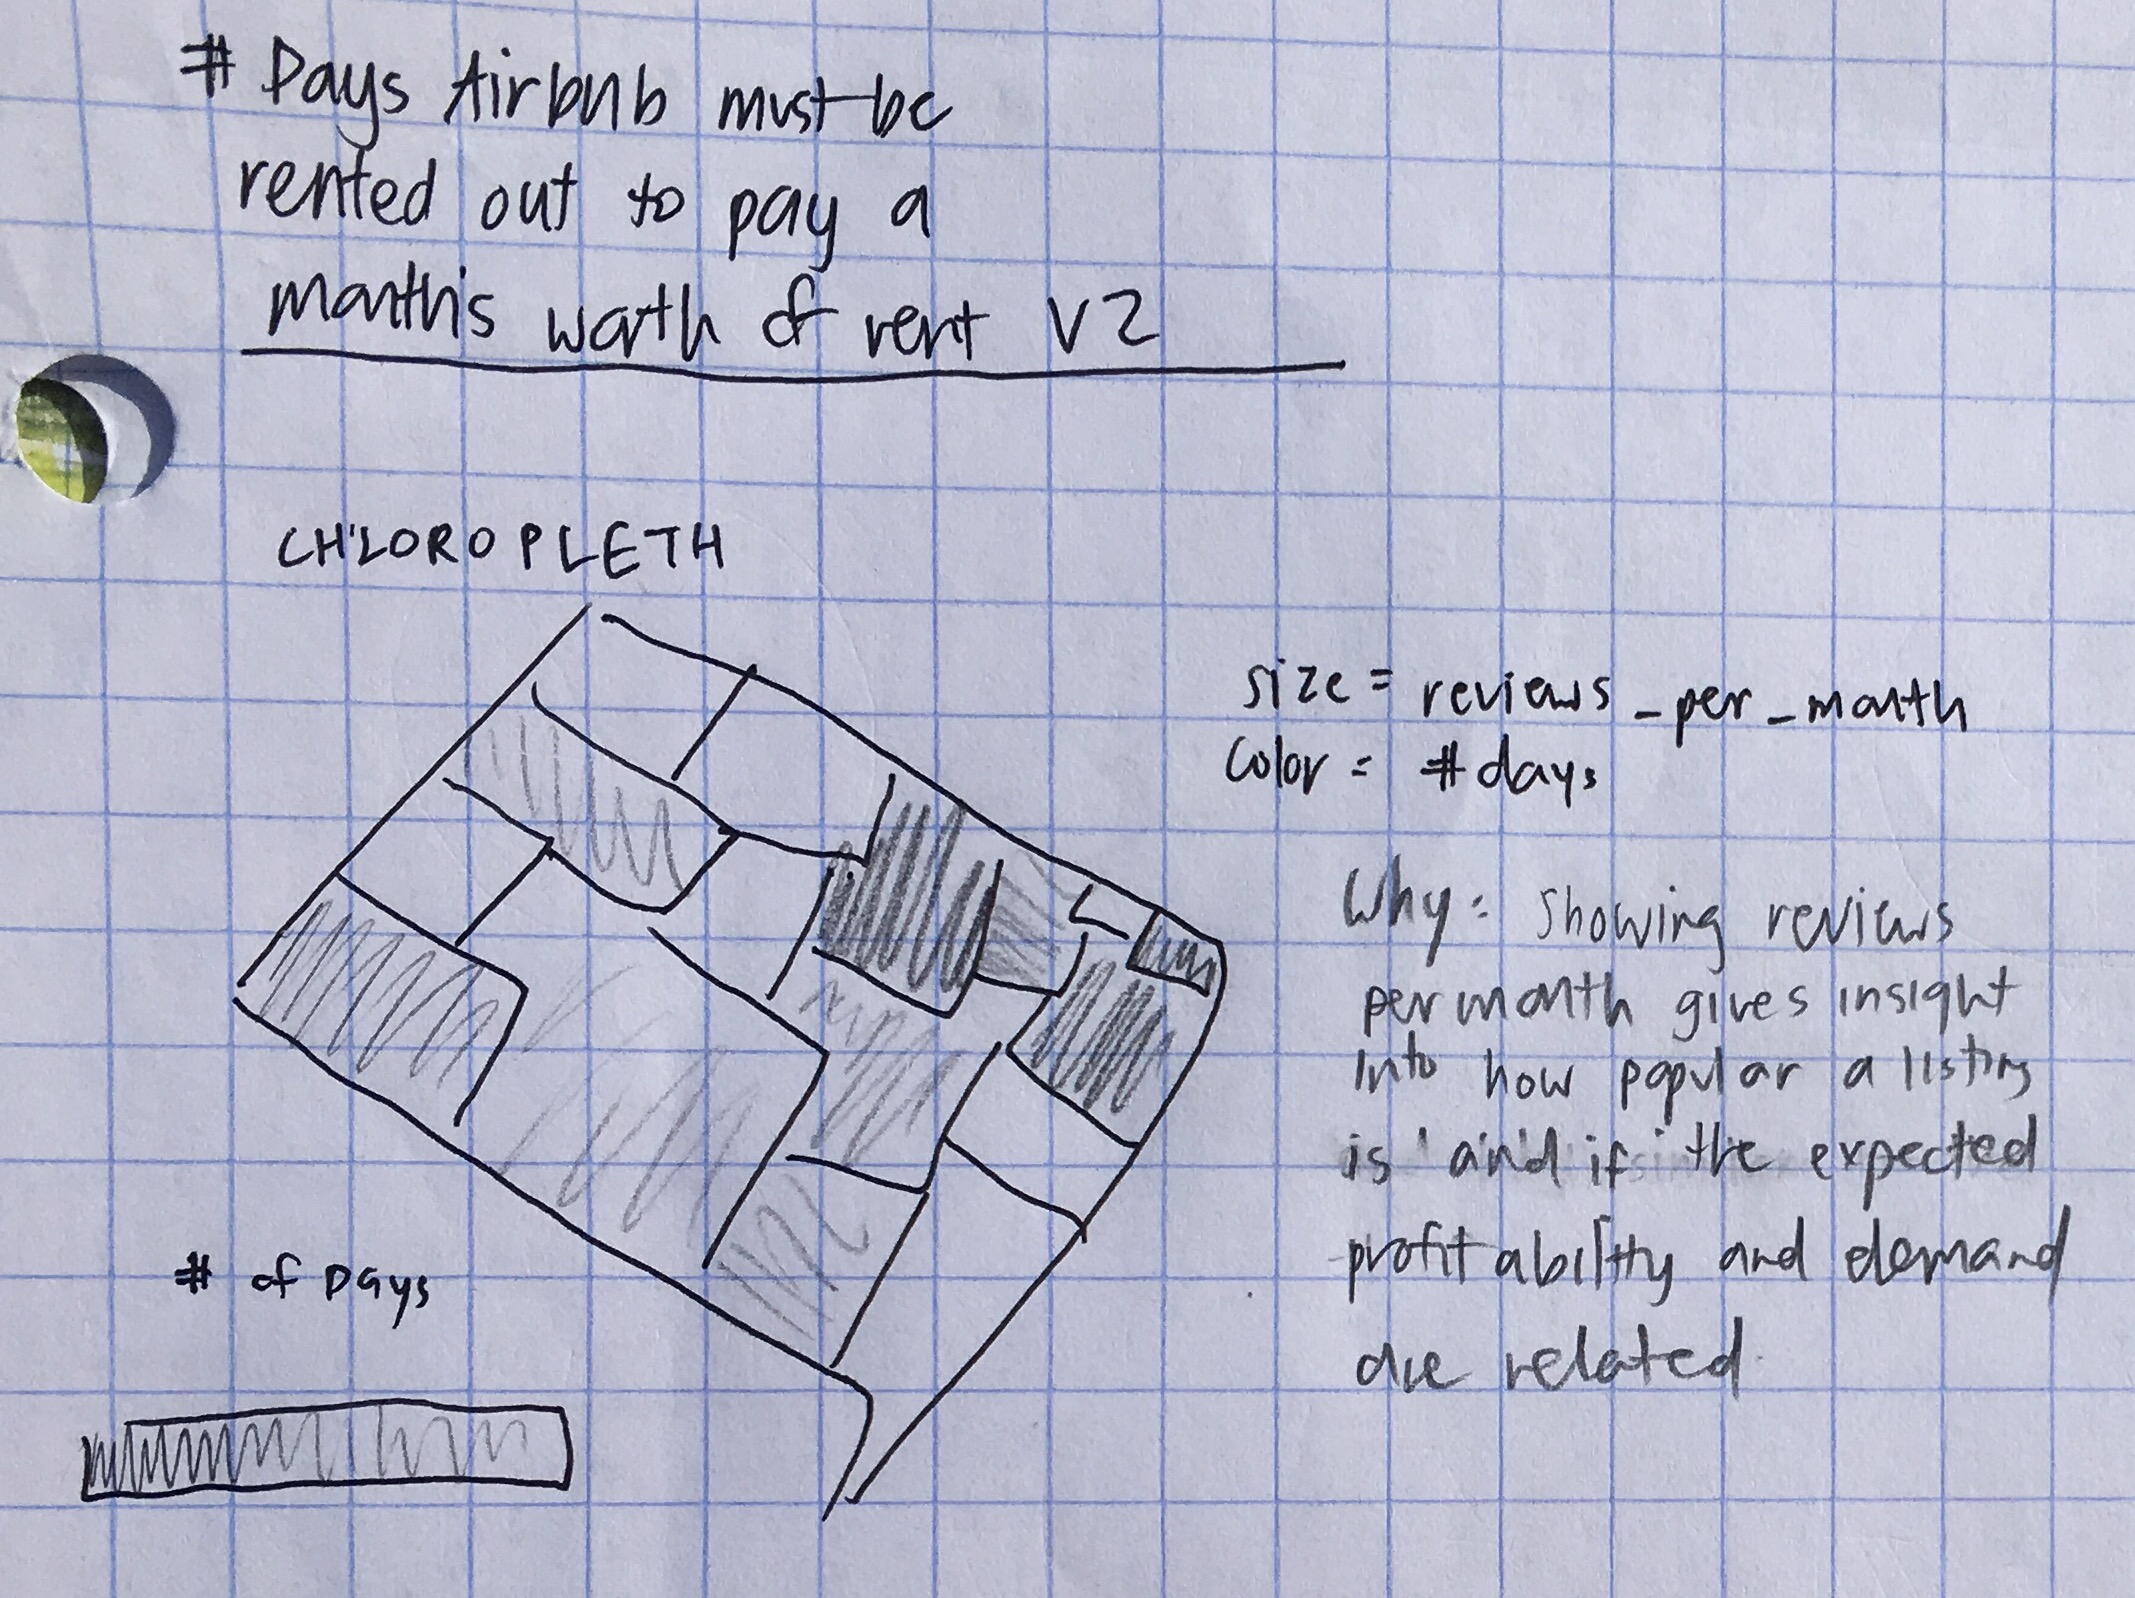 # Days Airbnb must be
rented out to pay a
month's worth of rent V2
CHLOROPLETH
size = reviews_per_month
color = # days
Why: Showing reviews
per month gives insight
into how popular a listing
is and if the expected
profitability and demand
are related.
# of Days